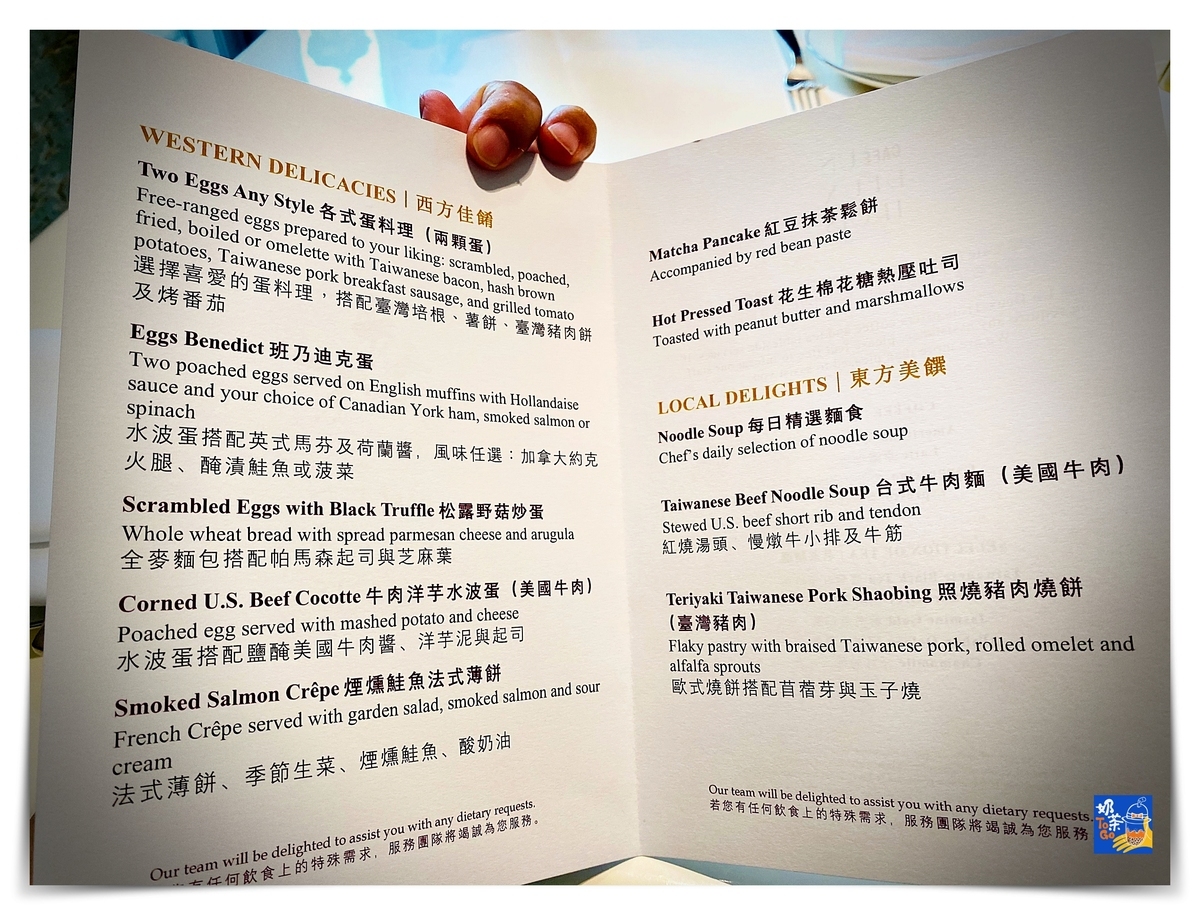 WESTERN DELICACIES | 西方佳餚
Two Eggs Any Style 各式蛋料理（兩顆蛋）
Free-ranged eggs prepared to your liking: scrambled, poached,
fried, boiled or omelette with Taiwanese bacon, hash brown
potatoes, Taiwanese pork breakfast sausage, and grilled tomato
選擇喜愛的蛋料理，搭配臺灣培根、薯餅、臺灣豬肉餅
及烤番茄
Eggs Benedict 班乃迪克蛋
Two poached eggs served on English muffins with Hollandaise
sauce and your choice of Canadian York ham, smoked salmon or
spinach
水波蛋搭配英式馬芬及荷蘭醬，風味任選：加拿大約克
火腿、醃漬鮭魚或菠菜
Scrambled Eggs with Black Truffle 松露野菇炒蛋
Whole wheat bread with spread parmesan cheese and arugula
全麥麵包搭配帕馬森起司與芝麻葉
Corned U.S. Beef Cocotte 牛肉洋芋水波蛋（美國牛肉）
Poached egg served with mashed potato and cheese
水波蛋搭配鹽醃美國牛肉醬、洋芋泥與起司
Smoked Salmon Crêpe 煙燻鮭魚法式薄餅
French Crêpe served with garden salad, smoked salmon and sour
cream
法式薄餅、季節生菜、煙燻鮭魚、酸奶油
Our team will be delighted to assist you with any dietary requests.
有任何飲食上的特殊需求，服務團隊將竭誠為您服務。
Matcha Pancake 紅豆抹茶鬆餅
Accompanied by red bean paste
Hot Pressed Toast 花生棉花糖熱壓吐司
Toasted with peanut butter and marshmallows
LOCAL DELIGHTS | 東方美饌
Noodle Soup 每日精選麵食
Chef's daily selection of noodle soup
Taiwanese Beef Noodle Soup 台式牛肉麵（美國牛肉）
Stewed U.S. beef short rib and tendon
紅燒湯頭、慢燉牛小排及牛筋
Teriyaki Taiwanese Pork Shaobing 照燒豬肉燒餅
（臺灣豬肉）
Flaky pastry with braised Taiwanese pork, rolled omelet and
alfalfa sprouts
歐式燒餅搭配苜蓿芽與玉子燒
Our team will be delighted to assist you with any dietary requests.
若您有任何飲食上的特殊需求，服務團隊將竭誠為您服務
奶茶
ToGo